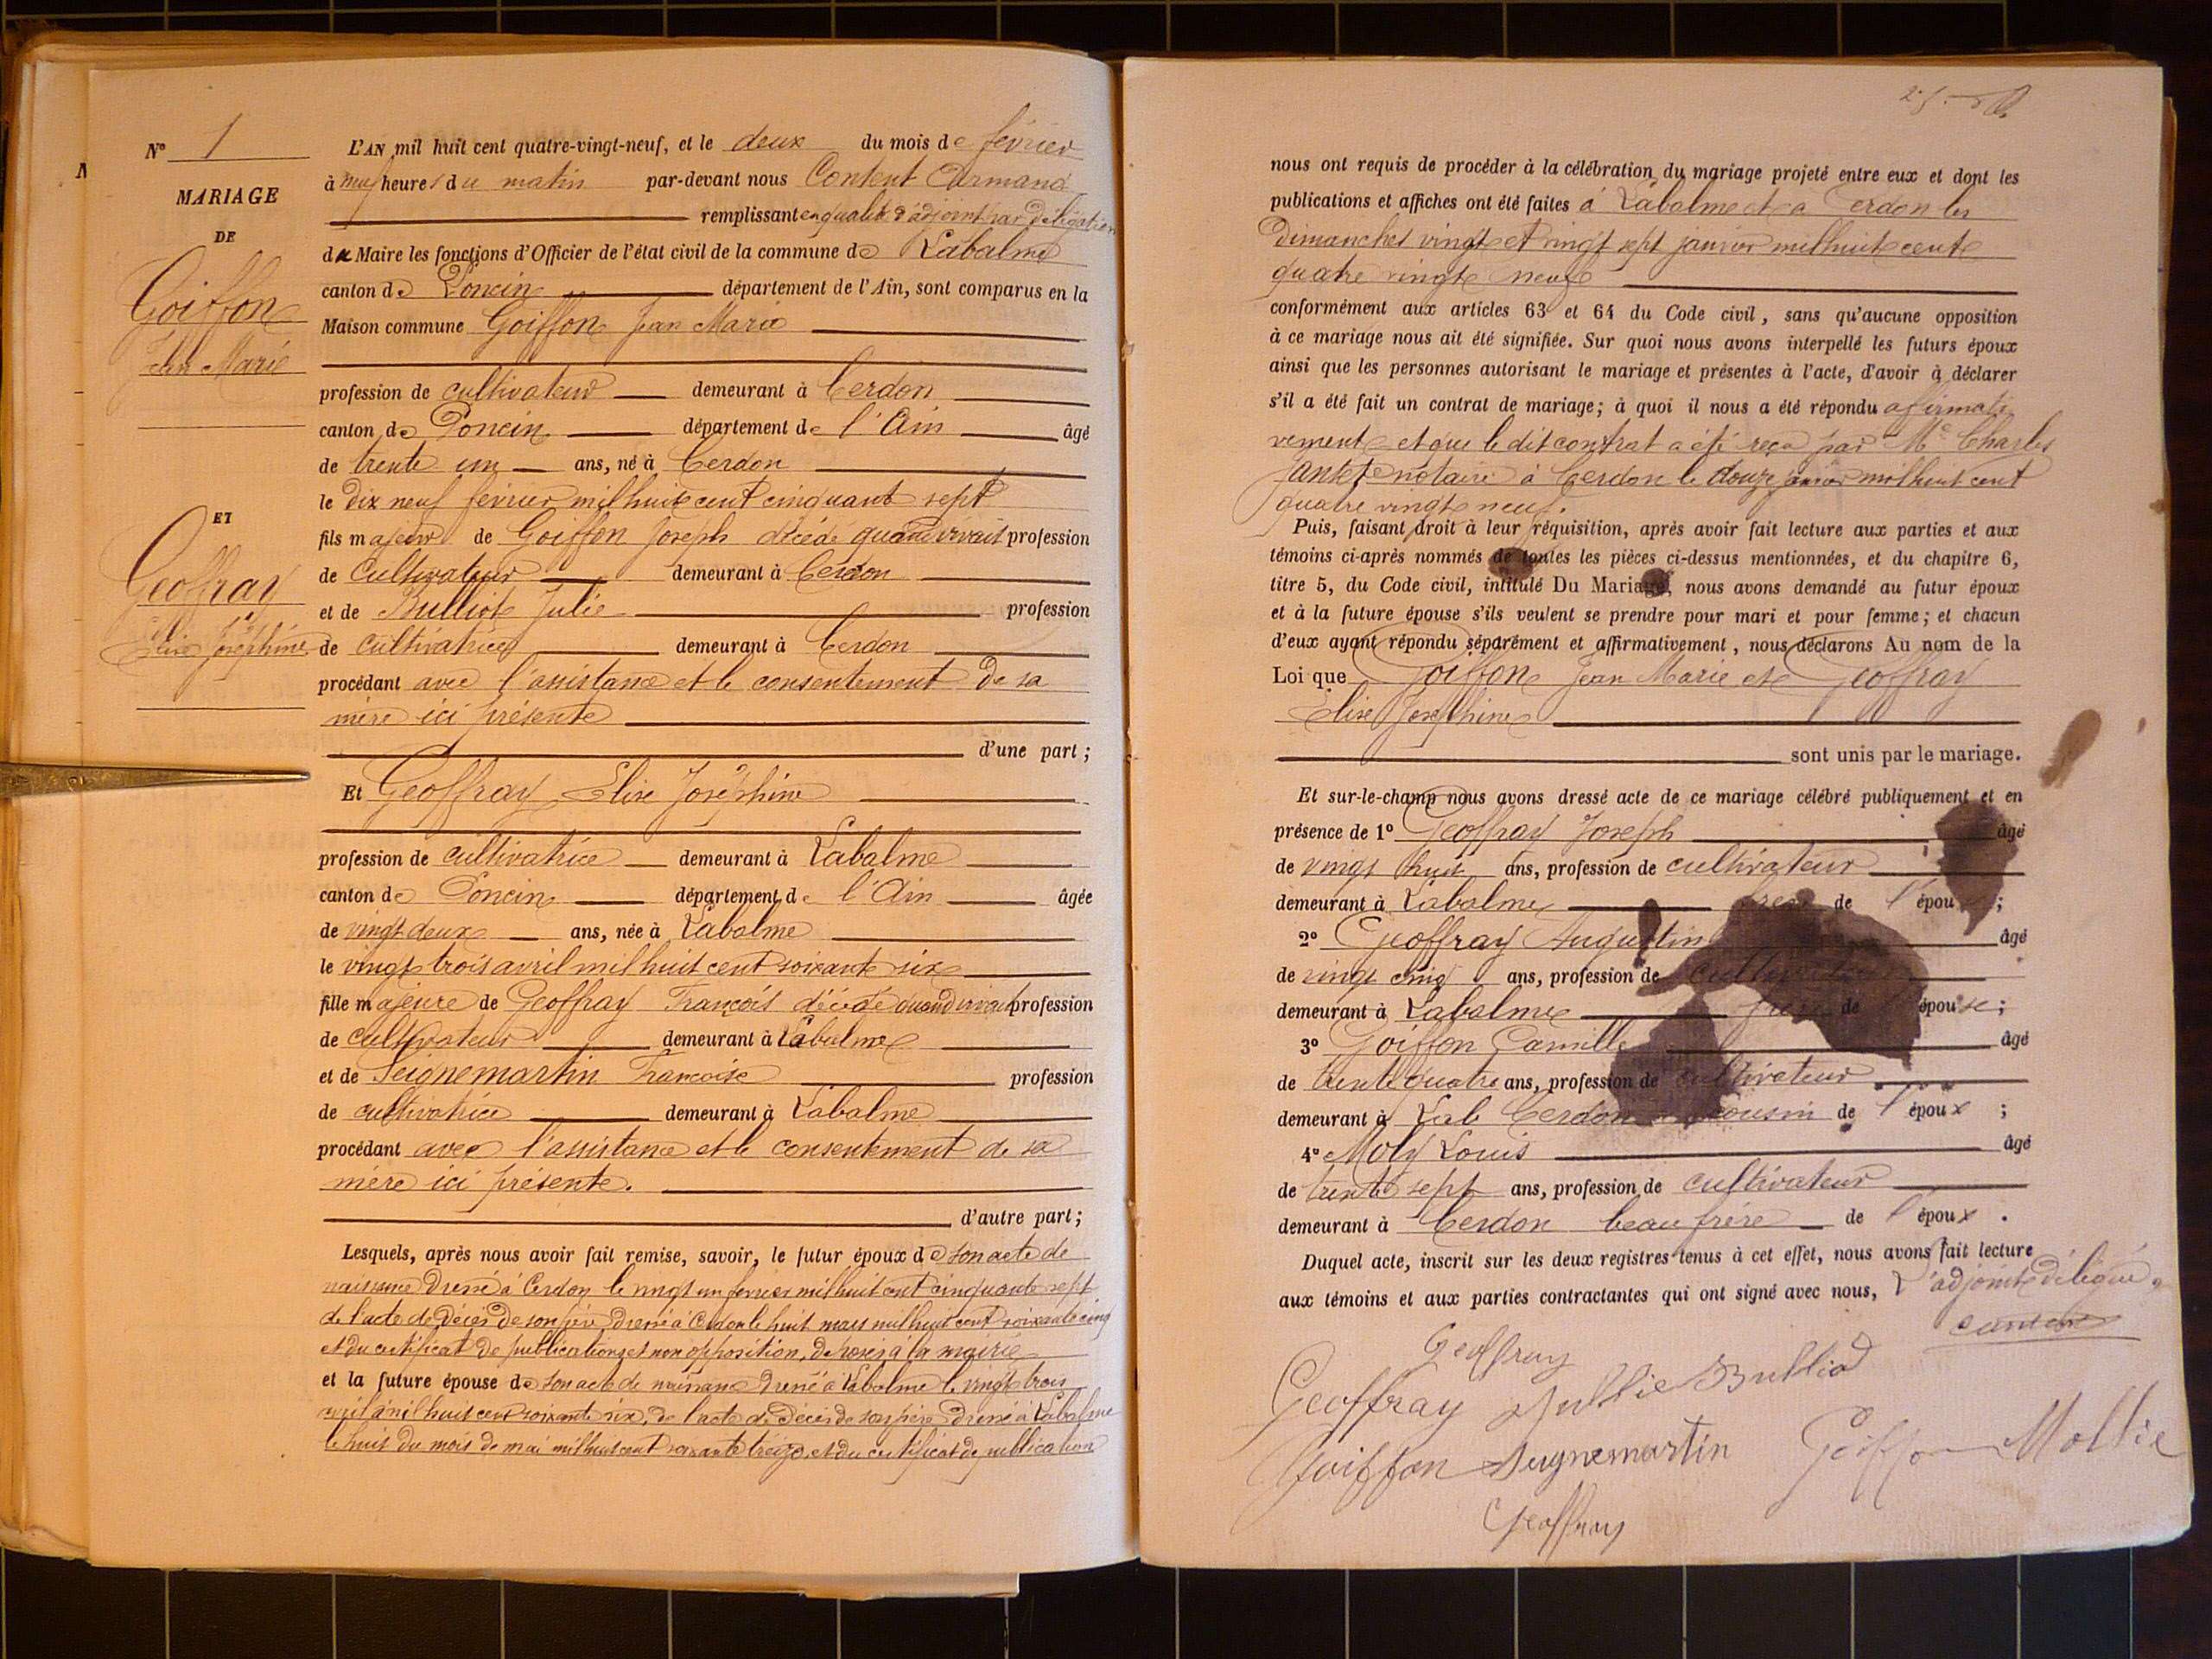 N° 1
MARIAGE
DE
Goiffon
Jean Marie
ET
Geoffray
Elise Joséphine
L'AN mil huit cent quatre-vingt-neuf, et le deux du mois de février
à neuf heures du matin par-devant nous Content Armand
remplissant en qualité d'adjoint par délégation
du Maire les fonctions d'Officier de l'état civil de la commune de Labalme
canton de Poncin département de l'Ain, sont comparus en la
Maison commune Goiffon Jean Marie
profession de cultivateur demeurant à Cerdon
canton de Poncin département de l'Ain âgé
de trente un ans, né à Cerdon
le dix neuf février mil huit cent cinquante sept
fils majeur de Goiffon Joseph décédé quand vivait profession
de cultivateur demeurant à Cerdon
et de Bulliot Julie profession
de cultivatrice demeurant à Cerdon
procédant avec l'assistance et le consentement de sa
mère ici présente
d'une part ;
Et Geoffray Elise Joséphine
profession de cultivatrice demeurant à Labalme
canton de Poncin département de l'Ain âgée
de vingt deux ans, née à Labalme
le vingt trois avril mil huit cent soixante six
fille majeure de Geoffray François décédé quand vivait profession
de cultivateur demeurant à Labalme
et de Seignemartin Francoise profession
de cultivatrice demeurant à Labalme
procédant avec l'assistance et le consentement de sa
mère ici présente.
d'autre part ;
Lesquels, après nous avoir fait remise, savoir, le futur époux de son acte de
naissance dressé à Cerdon le vingt un fevrier mil huit cent cinquante sept
de l'acte de décès de son père dressé à Cerdon le huit mars mil huit cent soixante cinq
et du certificat de publications et non opposition, déposés à la mairie
et la future épouse de son acte de naissance dressé à Labalme le vingt trois
avril mil huit cent soixante six, de l'acte de décès de son père dressé à Labalme
le huit du mois de mai mil huit cent soixante treize, et du certificat de publication
nous ont requis de procéder à la célébration du mariage projeté entre eux et dont les
publications et affiches ont été faites à Labalme et à Cerdon les
dimanches vingt et vingt sept janvier mil huit cent
quatre vingt neuf
conformément aux articles 63 et 64 du Code civil, sans qu'aucune opposition
à ce mariage nous ait été signifiée. Sur quoi nous avons interpellé les futurs époux
ainsi que les personnes autorisant le mariage et présentes à l'acte, d'avoir à déclarer
s'il a été fait un contrat de mariage ; à quoi il nous a été répondu afirmati
vement et que le dit contrat a été reçu par Me Charles
notaire à Cerdon le douze janvier mil huit cent
quatre vingt neuf.
Puis, faisant droit à leur réquisition, après avoir fait lecture aux parties et aux
témoins ci-après nommés de toutes les pièces ci-dessus mentionnées, et du chapitre 6,
titre 5, du Code civil, intitulé Du Mariage, nous avons demandé au futur époux
et à la future épouse s'ils veulent se prendre pour mari et pour femme ; et chacun
d'eux ayant répondu séparément et affirmativement, nous déclarons Au nom de la
Loi que Goiffon Jean Marie et Geoffray
Elise Josephine
sont unis par le mariage.
Et sur-le-champ nous avons dressé acte de ce mariage célébré publiquement et en
présence de 1° Geoffray Joseph âgé
de vingt huit ans, profession de cultivateur
demeurant à Labalme frère de l'épouse ;
2° Geoffray Augustin âgé
de vingt cinq ans, profession de cultivateur
demeurant à Labalme frère de l'épouse ;
3° Goiffon Camille âgé
de trente quatre ans, profession de cultivateur
demeurant à Lab Cerdon cousin de l'époux ;
4° Moly Louis âgé
de trente sept ans, profession de cultivateur
demeurant à Cerdon beau frère de l'époux .
Duquel acte, inscrit sur les deux registres tenus à cet effet, nous avons fait lecture
aux témoins et aux parties contractantes qui ont signé avec nous, L'adjoint délégué
Content
Geoffray
Geoffray Jullie Bulliod
Goiffon Seignemartin Goiffon Mollie
Geoffray